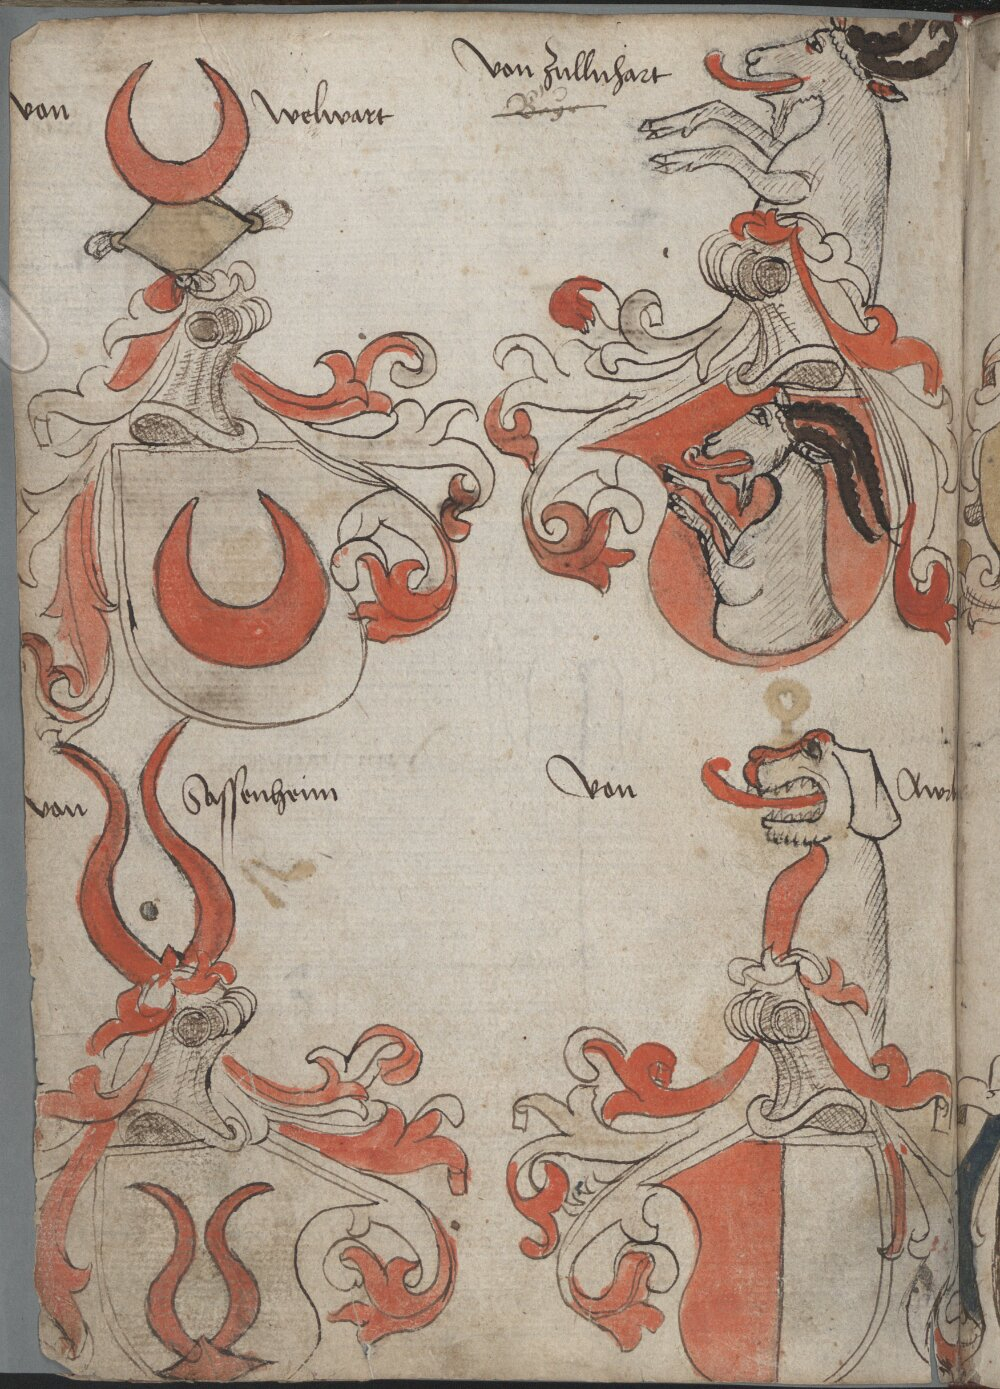 von welwart
von Zullnhart
von Sassenheim
von